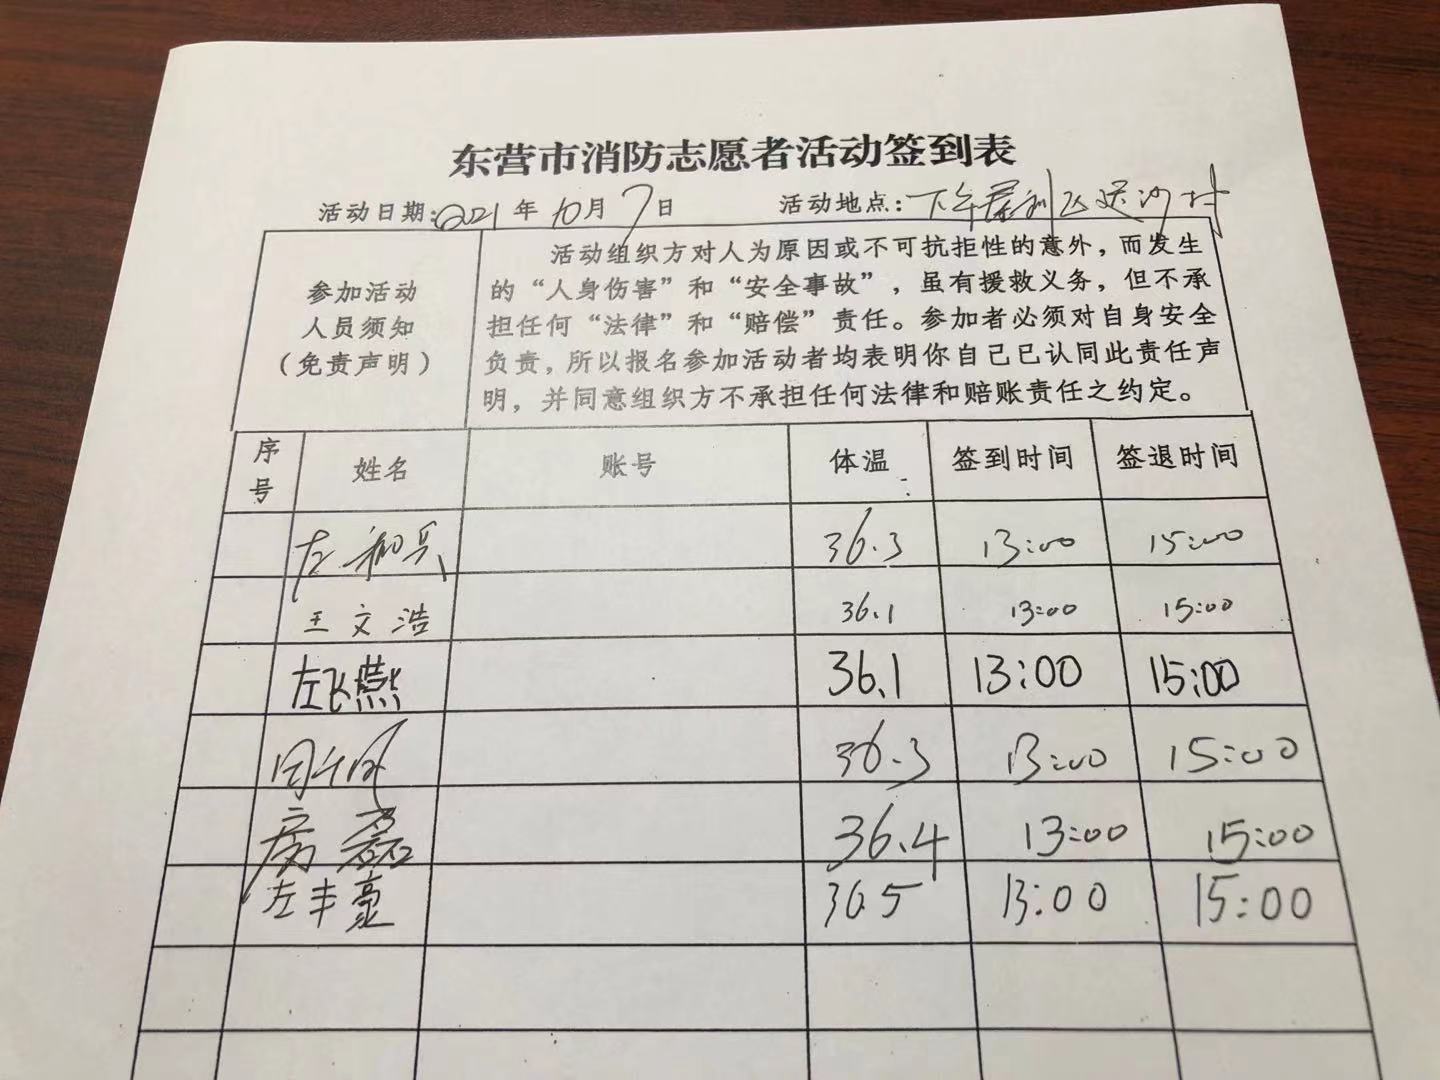 东营市消防志愿者活动签到表
活动日期:2021年10月7日 活动地点:下午垦利区 沙村
参加活动
人员须知
(免责声明)
活动组织方对人为原因或不可抗拒性的意外，而发生
的“人身伤害”和“安全事故”，虽有援救义务，但不承
担任何“法律”和“赔偿”责任。参加者必须对自身安全
负责，所以报名参加活动者均表明你自己已认同此责任声
明，并同意组织方不承担任何法律和赔账责任之约定。
序号 姓名 账号 体温 签到时间 签退时间
左 兵 36.3 13:00 15:00
王文浩 36.1 13:00 15:00
左飞燕 36.1 13:00 15:00
36.3 13:00 15:00
房磊 36.4 13:00 15:00
左丰豪 36.5 13:00 15:00